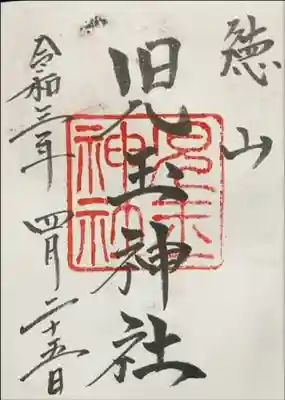 徳山
児玉神社
児玉神社
令和三年 四月二十五日